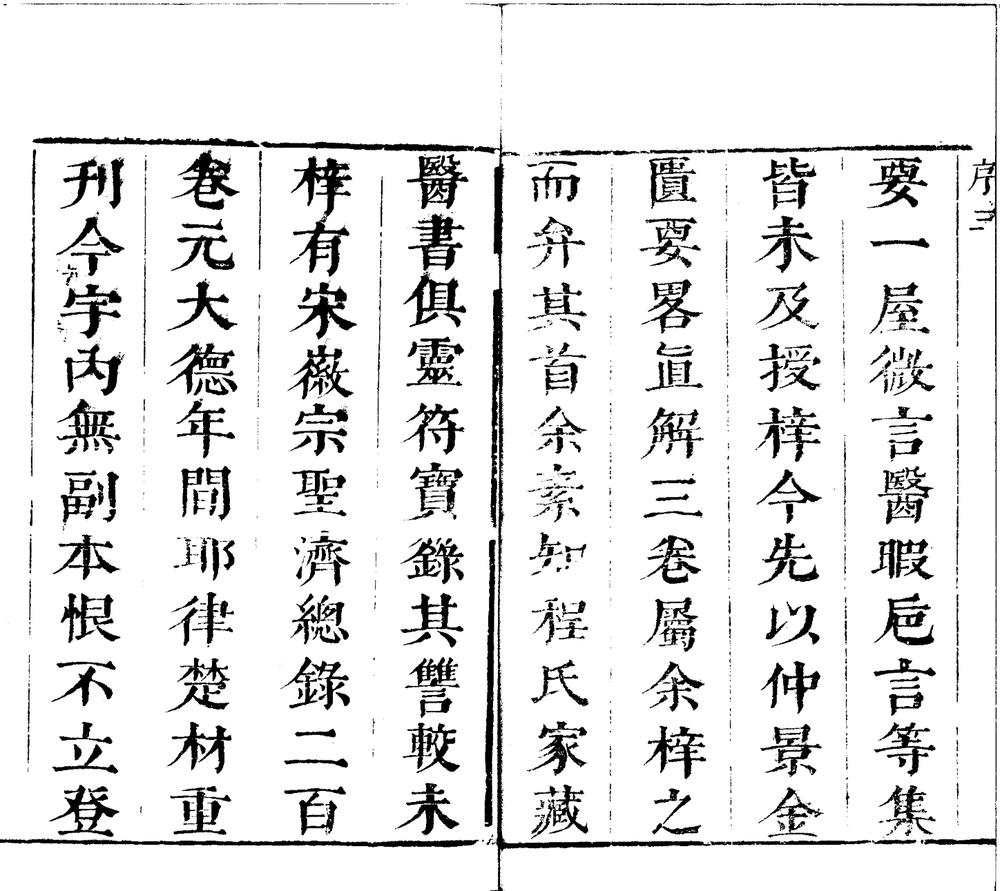 要一屋微言醫暇巵言等集
皆未及授梓今先以仲景金
匱要畧直解三卷屬余梓之
而弁其首余素知程氏家藏
醫書俱靈符寶錄其讐較未
梓有宋徽宗聖濟總錄二百
卷元大德年間耶律楚材重
刊今宇內無副本恨不立登